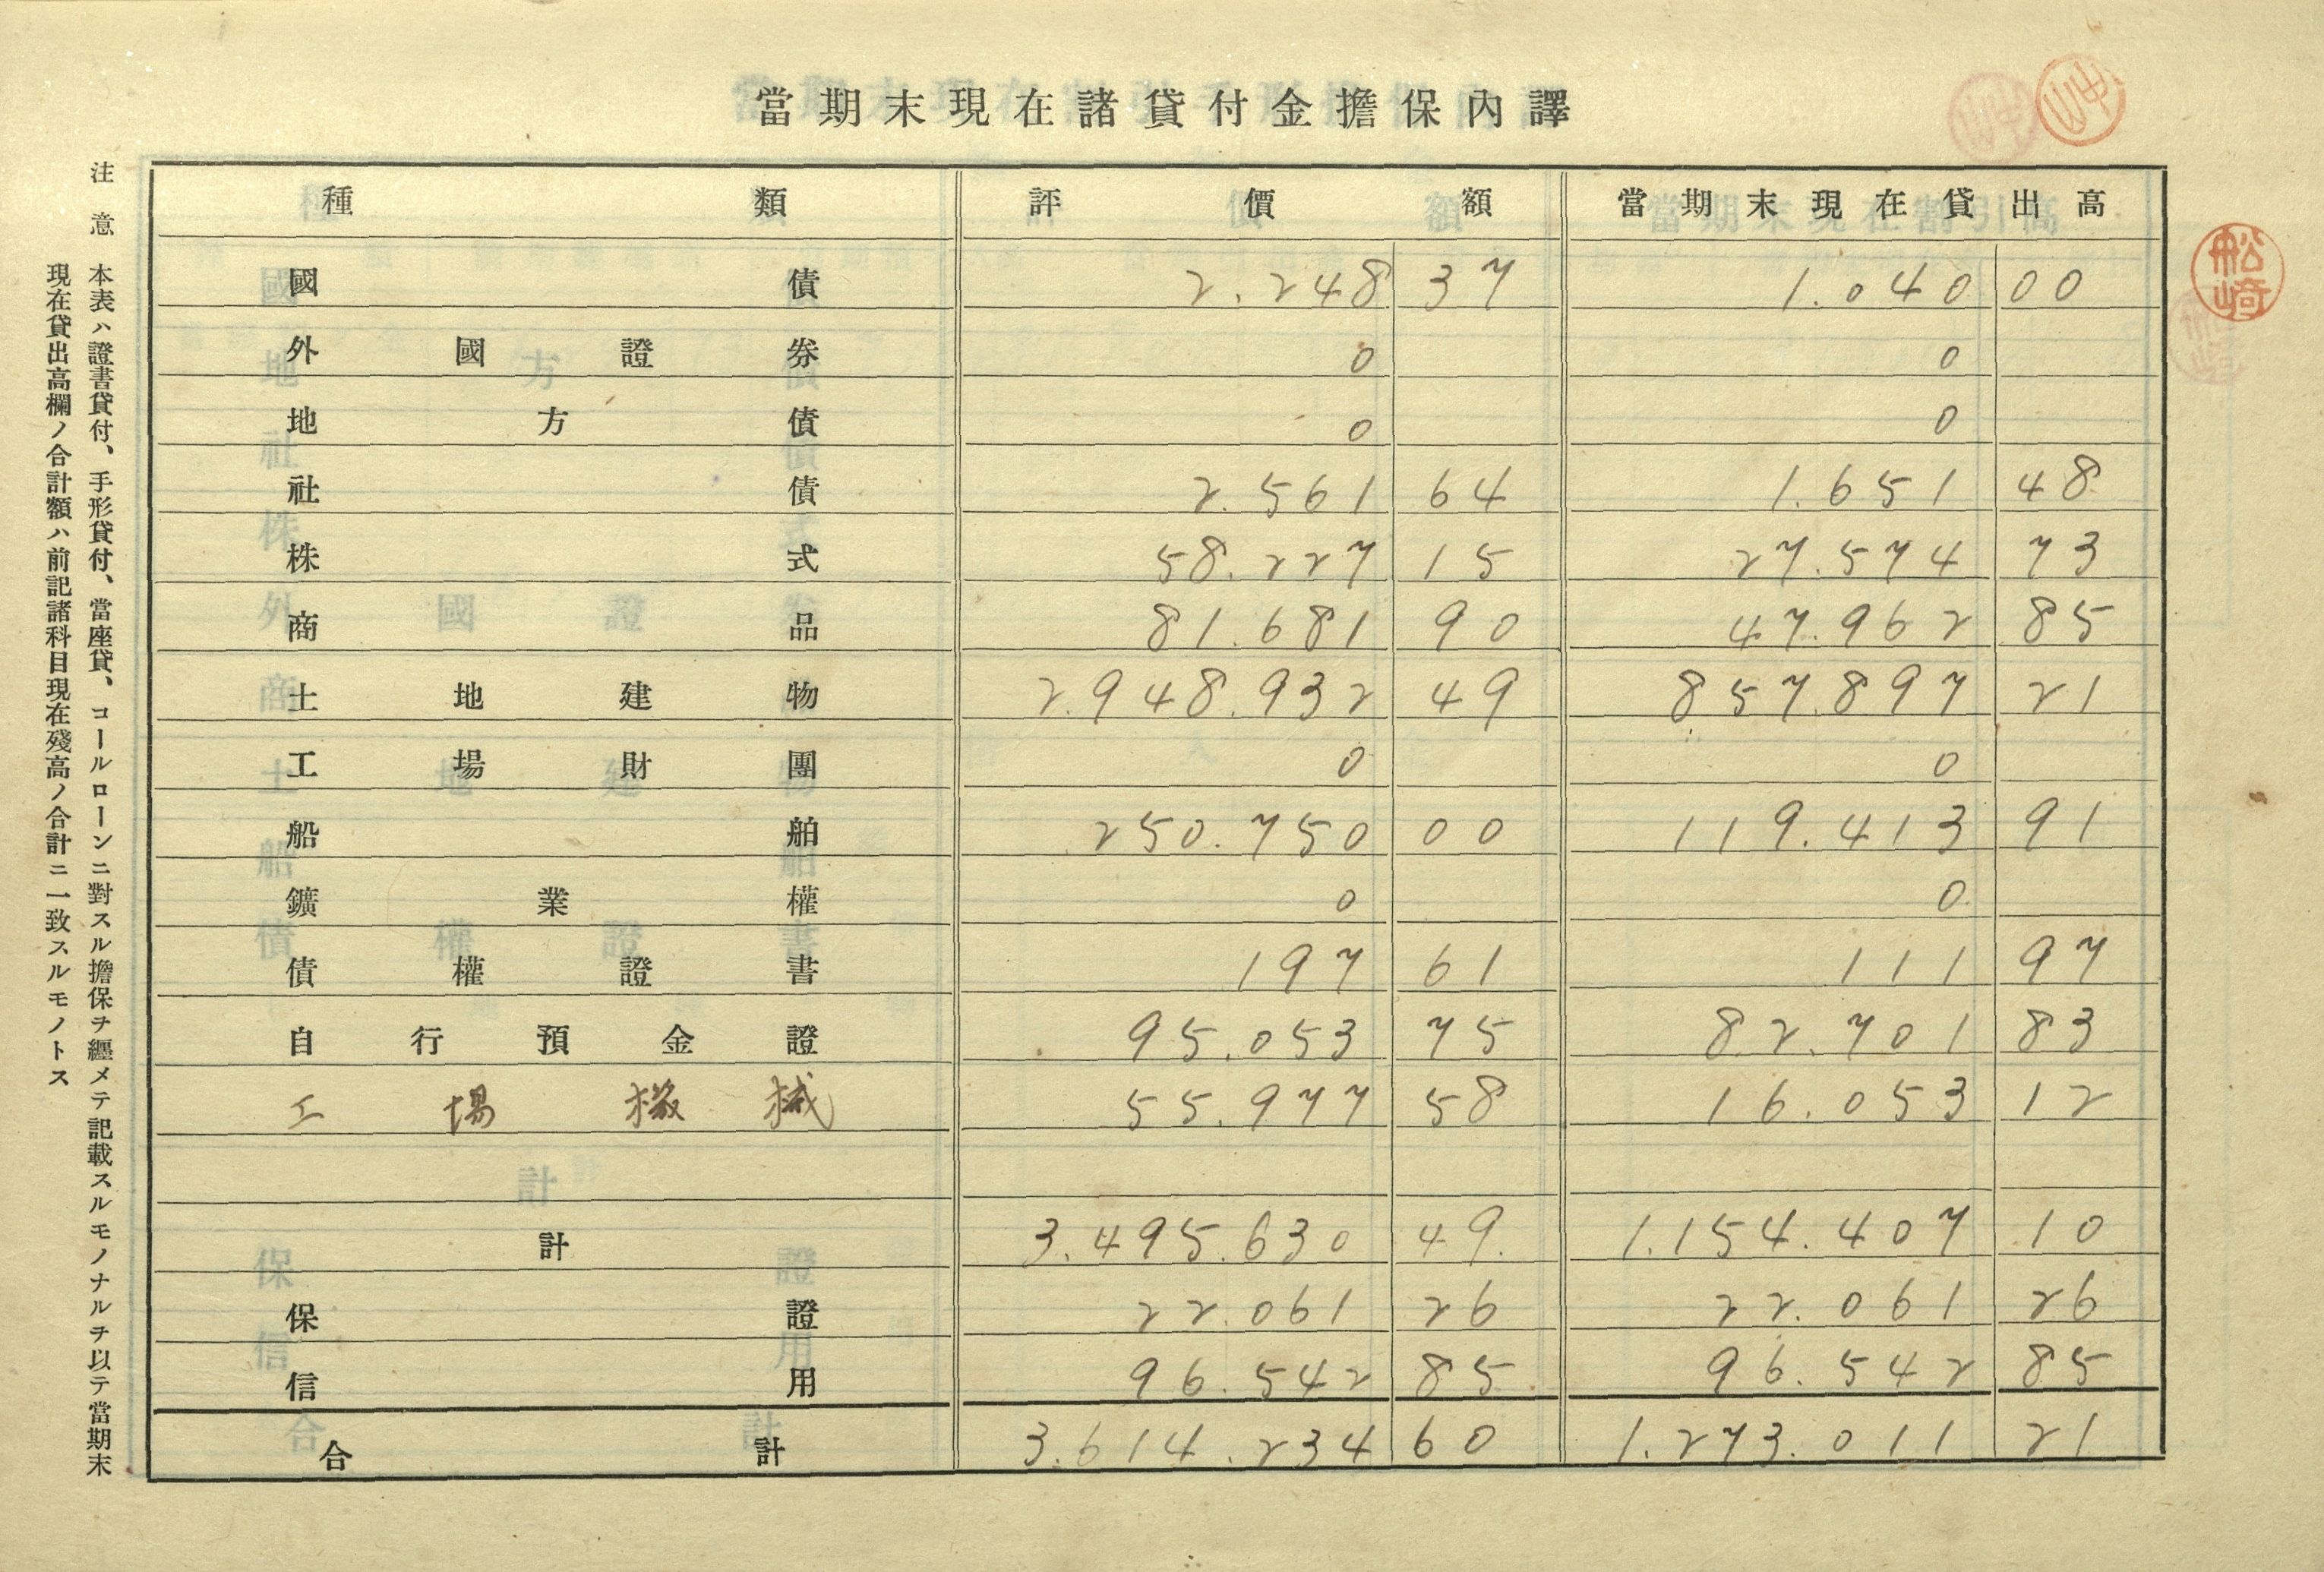 當期末現在諸貸付金擔保內譯
種類 評價額 當期末現在貸出高
國債 2.248 37 1.040 00
外國證券 0 0
地方債 0 0
社債 2.561 64 1.651 48
株式 58.227 15 27.574 73
商品 81.681 90 47.962 85
土地建物 2.948.932 49 857.897 21
工場財團 0 0
船舶 250.750 00 119.413 91
鑛業權 0 0
債權證書 197 61 111 97
自行預金證 95.053 75 82.701 83
工場機械 55.977 58 16.053 12
計 3.495.630 49 1.154.407 10
保證 22.061 26 22.061 26
信用 96.542 85 96.542 85
合計 3.614.234 60 1.273.011 21
注意 本表ハ證書貸付、手形貸付、當座貸、コールローンニ對スル擔保ヲ纒メテ記載スルモノナルヲ以テ當期末
現在貸出高欄ノ合計額ハ前記諸科目現在殘高ノ合計ニ一致スルモノトス
舩崎